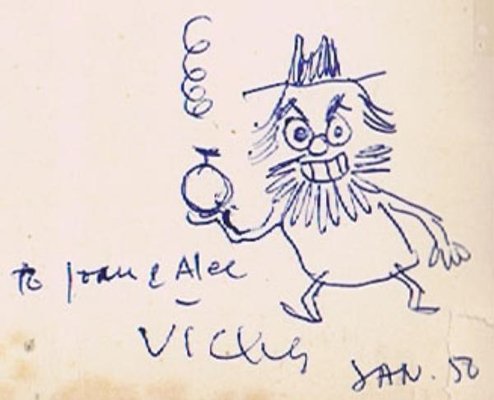 to Joan & Alec
VICKY
JAN. 50